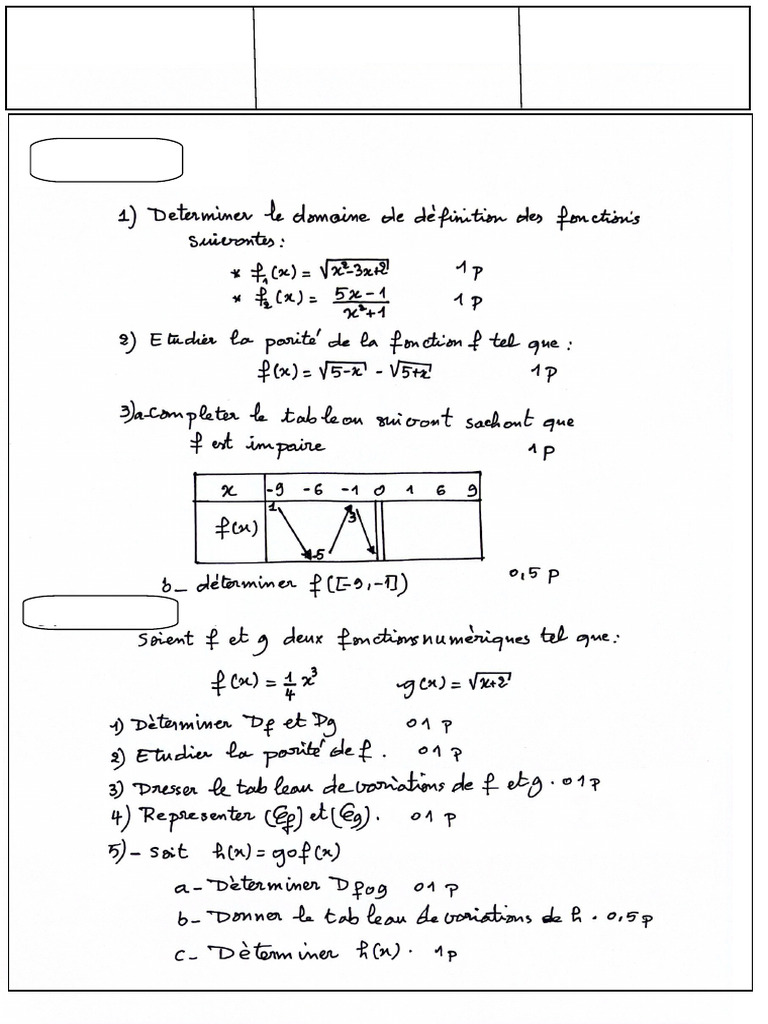 1) Determiner le domaine de dèfinition des fonctions
suivantes :
* f₁(x) = √x²-3x+2 1p
* f₂(x) = 5x-1/x²+1 1p
2) Etudier la parité de la fonction f tel que :
f(x) = √5-x - √5+x 1p
3)a-completer le tableau suivant sachant que
f est impaire 1p
x -9 -6 -1 0 1 6 9
f(x) 1 -5 3
b- déterminer f([-9,-1]) 0,5 p
Soient f et g deux fonctions numèriques tel que :
f(x) = 1/4 x³ g(x) = √x+2
1) Dèterminer Df et Dg 01 p
2) Etudier la parité de f. 01 p
3) Dresser le tableau de variations de f et g. 01p
4) Representer (Cf) et (Cg). 01 p
5)- soit h(x) = gof(x)
a- Dèterminer Dfog 01 p
b- Donner le tableau de variations de h. 0,5 p
c- Dèterminer h(x). 1p